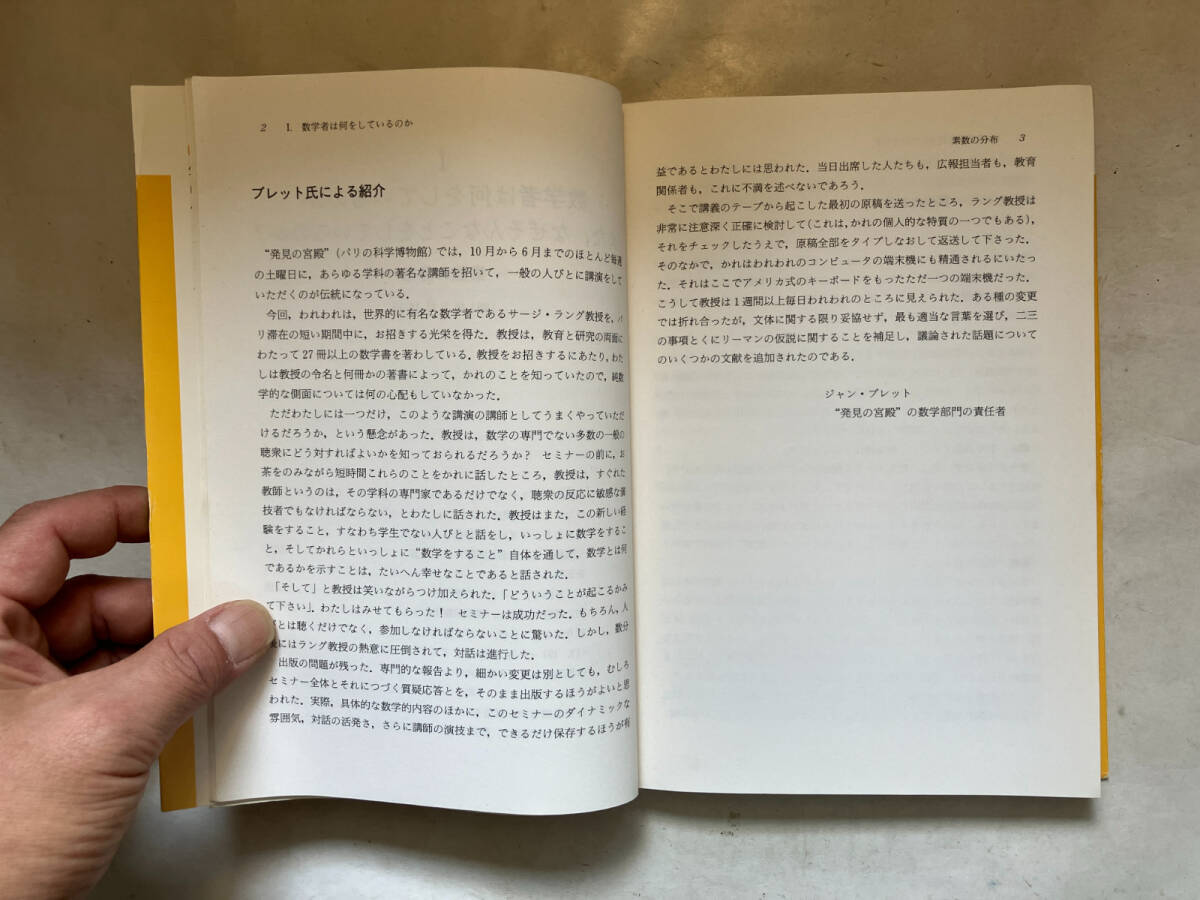 2 1. 数学者は何をしているのか
ブレット氏による紹介
“発見の宮殿”(パリの科学博物館)では,10月から6月までのほとんど毎週
の土曜日に,あらゆる学科の著名な講師を招いて,一般の人びとに講演をして
いただくのが伝統になっている.
今回,われわれは,世界的に有名な数学者であるサージ・ラング教授を,パ
リ滞在の短い期間中に,お招きする光栄を得た.教授は,教育と研究の両面に
わたって27冊以上の数学書を著わしている.教授をお招きするにあたり,わた
しは教授の令名と何冊かの著書によって,かれのことを知っていたので,純数
学的な側面については何の心配もしていなかった.
ただわたしには一つだけ,このような講演の講師としてうまくやっていただ
けるだろうか,という懸念があった.教授は,数学の専門でない多数の一般の
聴衆にどう対すればよいかを知っておられるだろうか? セミナーの前に,お
茶をのみながら短時間これらのことをかれに話したところ,教授は,すぐれた
教師というのは,その学科の専門家であるだけでなく,聴衆の反応に敏感な演
技者でもなければならない,とわたしに話された.教授はまた,この新しい経
験をすること,すなわち学生でない人びとと話をし,いっしょに数学をするこ
と,そしてかれらといっしょに“数学をすること”自体を通して,数学とは何
であるかを示すことは,たいへん幸せなことであると話された.
「そして」と教授は笑いながらつけ加えられた.「どういうことが起こるかみ
て下さい」.わたしはみせてもらった! セミナーは成功だった.もちろん,人
とは聴くだけでなく,参加しなければならないことに驚いた.しかし,数分
にはラング教授の熱意に圧倒されて,対話は進行した.
出版の問題が残った.専門的な報告より,細かい変更は別としても,むしろ
セミナー全体とそれにつづく質疑応答とを,そのまま出版するほうがよいと思
われた.実際,具体的な数学的内容のほかに,このセミナーのダイナミックな
雰囲気,対話の活発さ,さらに講師の演技まで,できるだけ保存するほうが有
素数の分布 3
益であるとわたしには思われた.当日出席した人たちも,広報担当者も,教育
関係者も,これに不満を述べないであろう.
そこで講義のテープから起こした最初の原稿を送ったところ,ラング教授は
非常に注意深く正確に検討して(これは,かれの個人的な特質の一つでもある),
それをチェックしたうえで,原稿全部をタイプしなおして返送して下さった.
そのなかで,かれはわれわれのコンピュータの端末機にも精通されるにいたっ
た.それはここでアメリカ式のキーボードをもったただ一つの端末機だった.
こうして教授は1週間以上毎日われわれのところに見えられた.ある種の変更
では折れ合ったが,文体に関する限り妥協せず,最も適当な言葉を選び,二三
の事項とくにリーマンの仮説に関することを補足し,議論された話題について
のいくつかの文献を追加されたのである.
ジャン・ブレット
“発見の宮殿”の数学部門の責任者